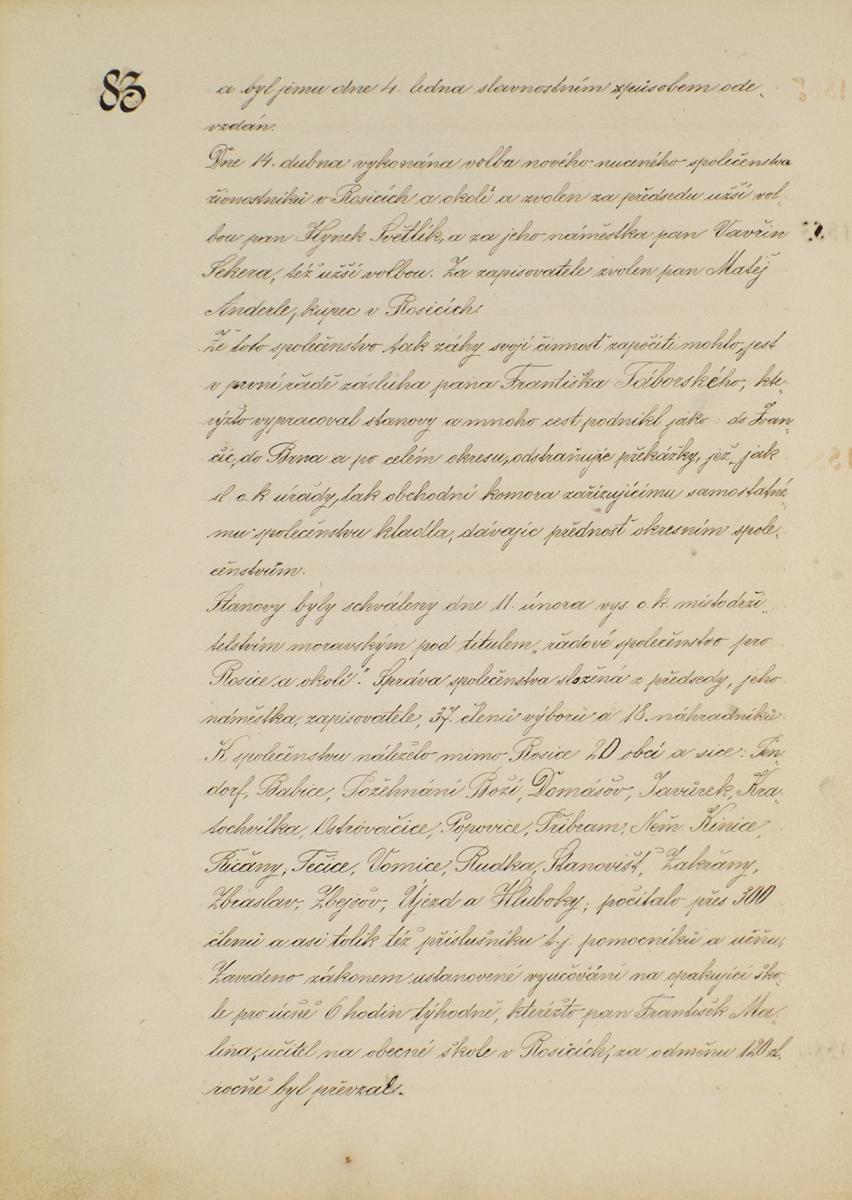 83
a byl jemu dne 4. ledna slavnostním způsobem ode-
vzdán.
Dne 14. dubna vykonána volba nového nuceného společenstva
živnostníků v Rosicích a okolí a zvolen za předsedu užší vol-
bou pan Hynek Světlík, a za jeho náměstka pan Vavřin
Sekera, též užší volbou. Za zapisovatele zvolen pan Matěj
Anderle, kupec v Rosicích.
Že toto společenstvo tak záhy svoji činnosť započíti mohlo, jest
v první řadě zásluha pana Františka Táborského, kte-
rýžto vypracoval stanovy a mnoho cest podnikl jako: do Ivan-
čic, do Brna a po celém okresu, odstraňujíc překážky, jež, jak
sl. c. k. úřady, tak obchodní komora zařizujícímu samostatné-
mu společenstvu kladla, dávajíc přednosť okresním spole-
čenstvům.
Stanovy byly schváleny dne 11. února vys. c. k. místodrži-
telstvím moravským pod titulem „řadové společenstvo pro
Rosice a okolí". Správa společenstva složená z předsedy, jeho
náměstka, zapisovatele, 37. členů výboru a 18. náhradníků.
K společenstvu náleželo mimo Rosice 20 obcí a sice: Pen-
dorf, Babice, Požehnání Boží, Domášov, Javůrek, Kra-
tochvilka, Ostrovačice, Popovice, Příbram, Něm. Kinice,
Říčany, Tečice, Vomice, Rudka, Stanovišť, Zakřany,
Zbraslav, Zbejšov, Újezd a Hluboky; počítalo přes 300
členů a asi tolik též příslušníků t. j. pomocníků a učňů.
Zavedeno zákonem ustanovené vyučování na opakující ško-
le pro učně 6 hodin týhodně, kteréžto pan František Ma-
lina, učitel na obecné škole v Rosicích, za odměnu 120 zl.
ročně byl převzal.